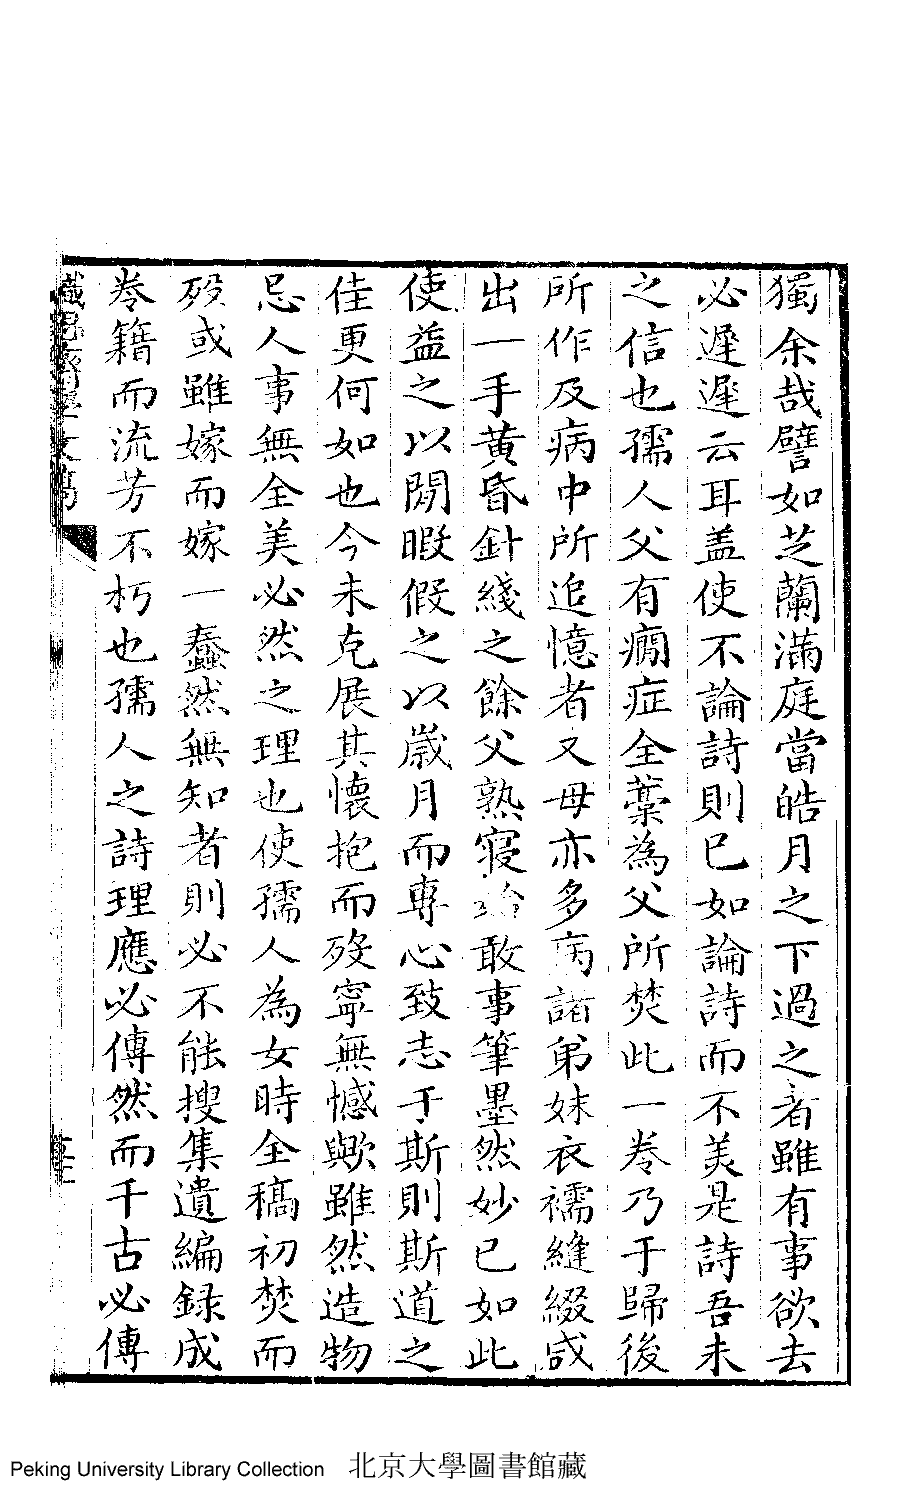 獨余哉譬如芝蘭滿庭當皓月之下過之者雖有事欲去
必遲遲云耳盖使不論詩則已如論詩而不美是詩吾未
之信也孺人父有癇症全藁為父所焚此一卷乃于歸後
所作及病中所追憶者又母亦多病諸弟妹衣襦縫綴咸
出一手黄昏針綫之餘父熟寝始敢事筆墨然妙已如此
使益之以閒暇假之以歲月而專心致志于斯則斯道之
佳更何如也今未克展其懷抱而歿寧無憾歟雖然造物
忌人事無全美必然之理也使孺人為女時全稿初焚而
歿或雖嫁而嫁一蠢然無知者則必不能搜集遺編録成
卷籍而流芳不朽也孺人之詩理應必傳然而千古必傳
Peking University Library Collection 北京大學圖書館藏